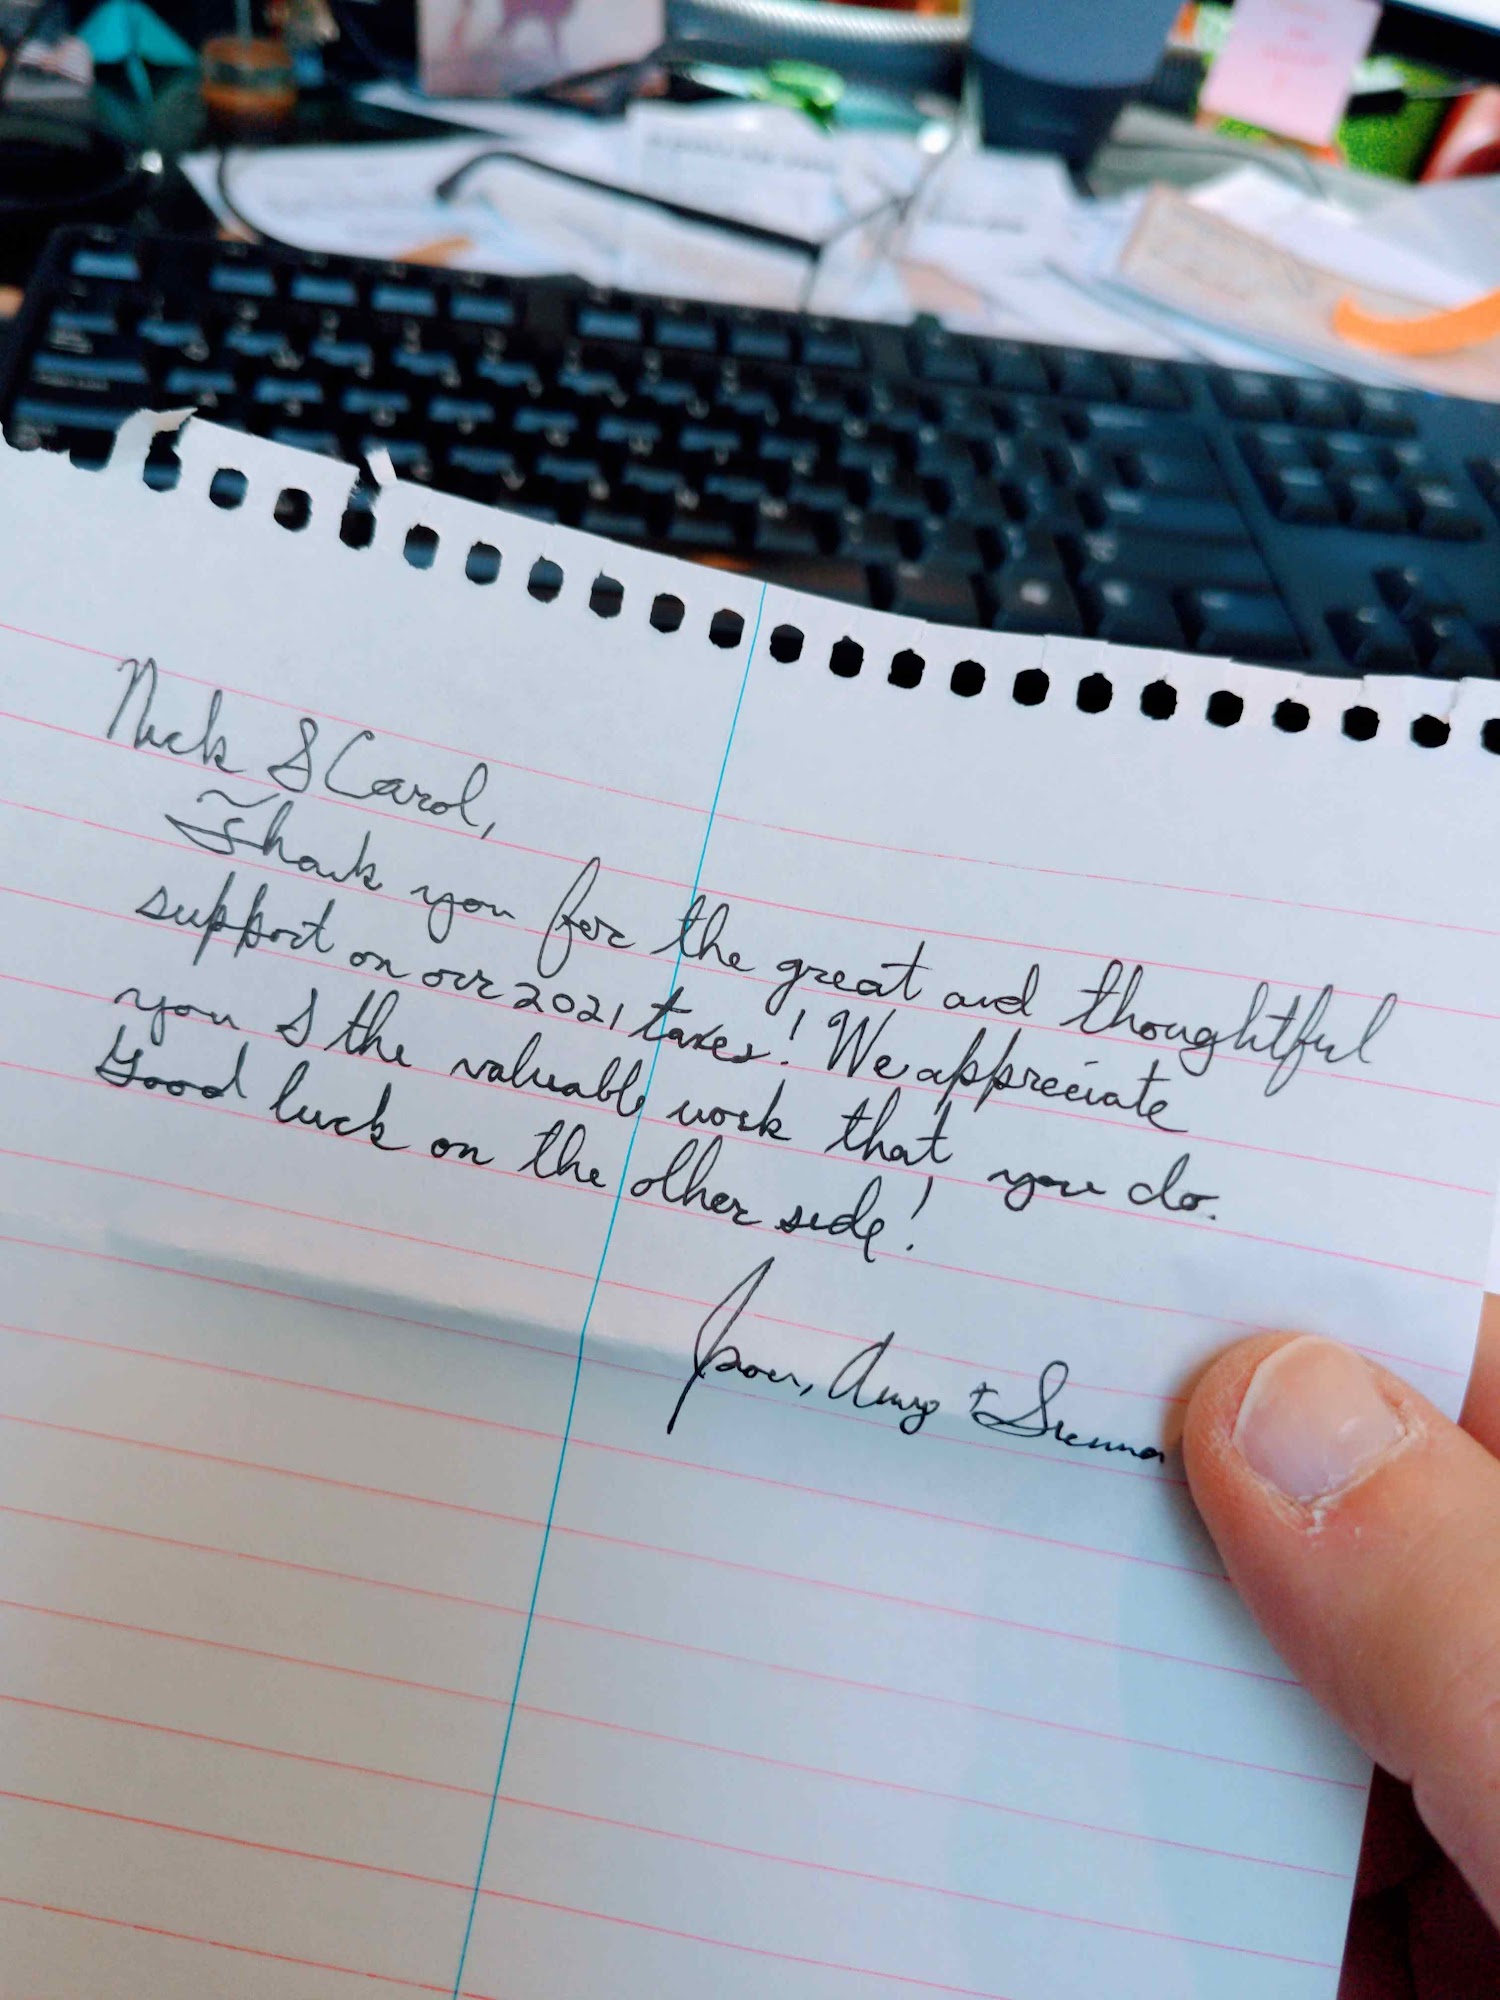 Nick & Carol,
Thank you for the great and thoughtful
support on our 2021 taxes! We appreciate
you & the valuable work that you do.
Good luck on the other side!
Amy + Sienna